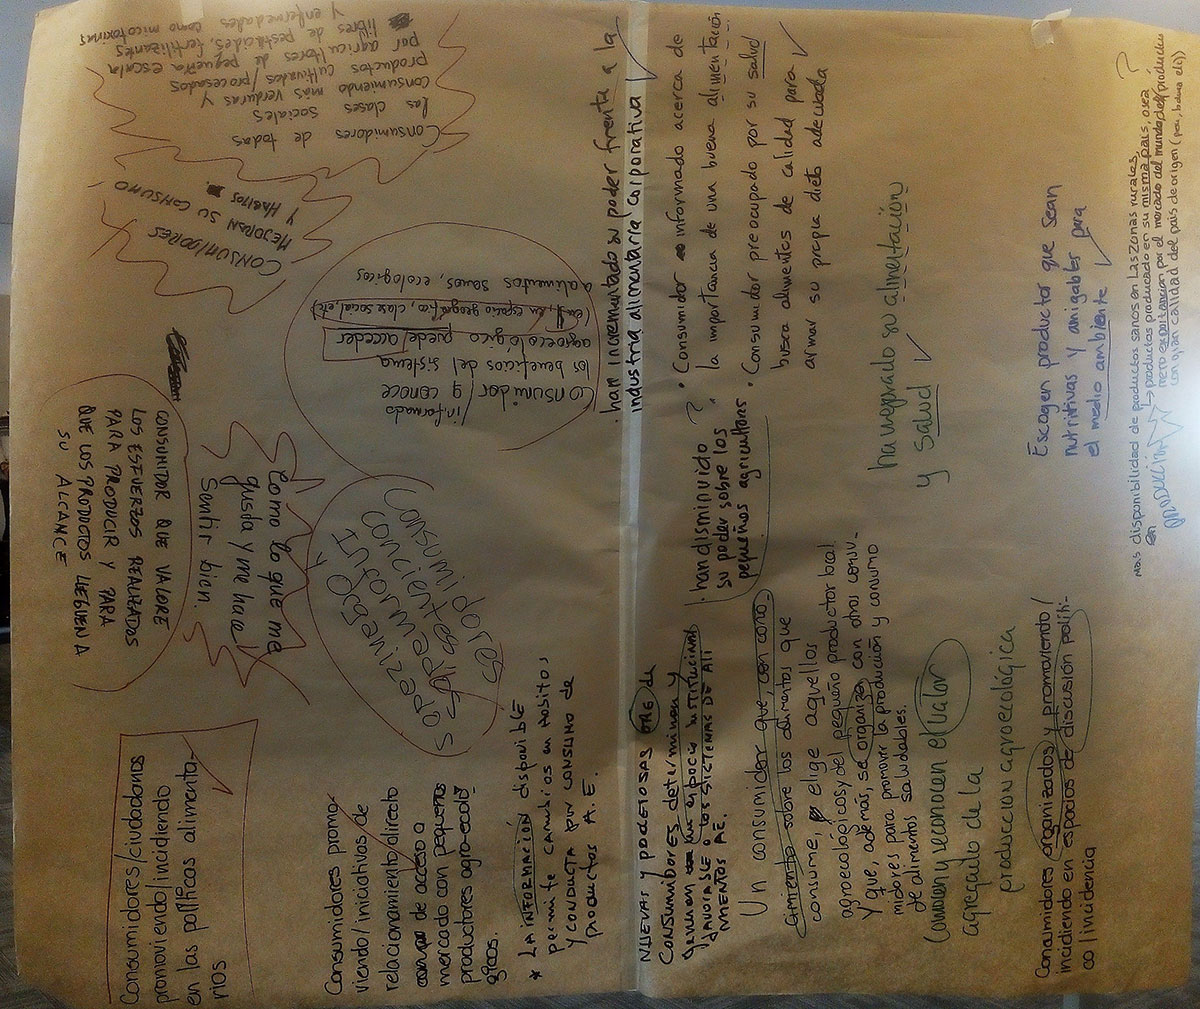 Consumidores/ciudadanos
promoviendo/incidiendo
en las políticas alimenta-
rios
CONSUMIDOR QUE VALORE
LOS ESFUERZOS REALIZADOS
PARA PRODUCIR Y PARA
QUE LOS PRODUCTOS LLEGUEN A
SU ALCANCE
Como lo que me
gusta y me hace
Sentir bien.
CONSUMIDORES
MEJORAN SU CONSUMO
Y HABITOS
Consumidores de todas
las clases sociales
consumiendo más verduras y
productos cultivados/procesados
por agricultores de pequeña escala
libres de pestizides, fertilizantes
y enfermedades como micotoxinas
Consumidor informado
y conoce
los beneficios del sistema
agroecológico puede/acceder
(en su espacio geografico, clase social, etc)
a alimentos sanos, ecológicos
Consumidores promo-
viendo/iniciativas de
relacionamiento directo
de acceso a
mercado con pequeños
productores agro-ecoló-
gicos.
* LA INFORMACIÓN disponible
permite cambios en habitos
y conducta por consumo de
productos A.E.
Consumi
dores
conciente
informa
· han incrementado su poder frente a la
industria alimentaria corporativa
NUEVAS Y PODEROSAS de
CONSUMIDORES determinan y
generan un espacio institucional
favorable a los SISTEMAS DE ALI
MENTOS AE.
· han disminuido ?
su poder sobre los
pequeños agricultores
• Consumidor informado acerca de
la importancia de una buena alimentación
• Consumidor preocupado por su salud
busca alimentos de calidad para
armar su propia dieta adecuada
Un consumidor que, con cono-
cimiento sobre los alimentos que
consume, elige aquellos
agroecológicos, del pequeño productor local.
Y que, además, se organiza con otros consu-
midores para promover la producción y consumo
de alimentos saludables.
ha mejorado su alimetación
y salud
Conocen y reconocen el valor
agregado de la
producción agroecológica
Escogen productor que sean
nutritivas y amigables para
el medio ambiente
Consumidores organizados y promoviendo/
incidiendo en espacios de discusión políti-
co/incidencia
Mas disponibilidad de productos sanos en las zonas rurales,
en producción
→ productos producado en su misma país, o sea, ?
menos exportacion por el mercado del mundo, de productos
con gran calidad del país de origen (peru, bolivia etc))